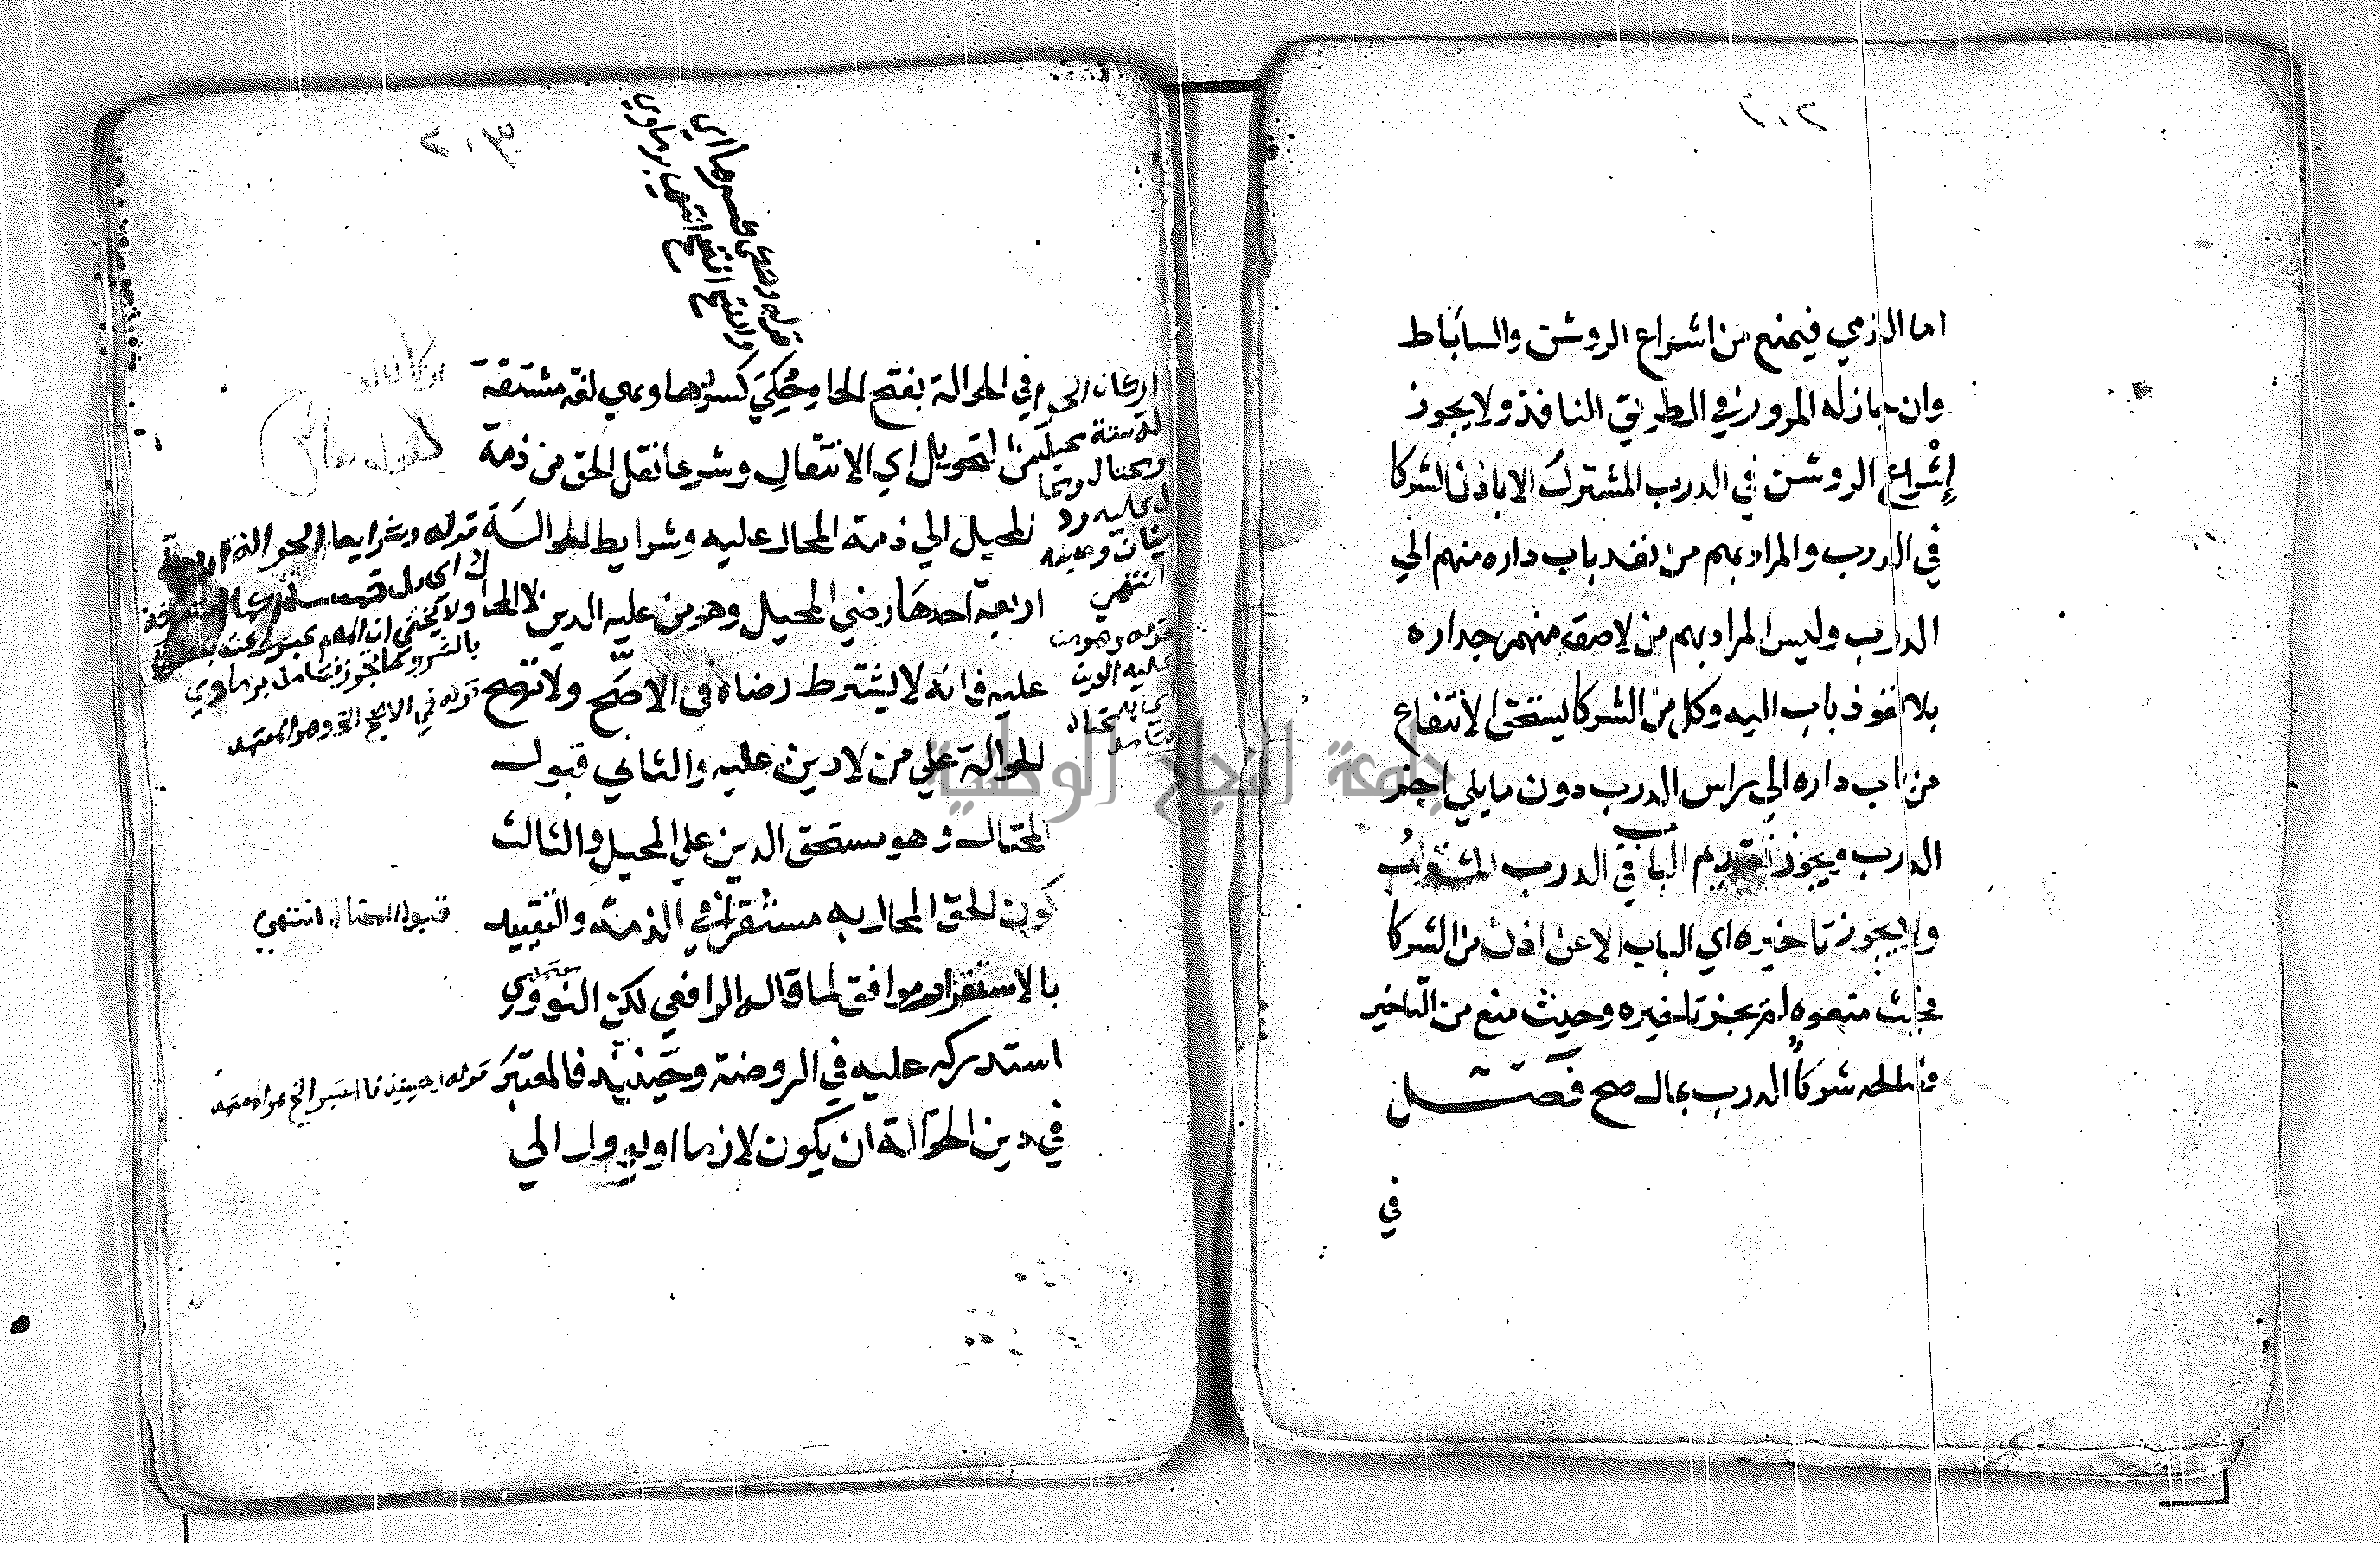 ٢٠٢
اما الذمي فيمنع من اشراع الروشن والساباط
وان جاز له المرور في الطريق النافذ ولا يجوز
إشراع الروشن في الدرب المشترك الا باذن الشركا
في الدرب والمراد بهم من نفد باب داره منهم الي
الدرب وليس المراد بهم من لاصقه منهم جداره
بلا نفوذ باب اليه وكل من الشركا يستحق الانتفاع
من باب داره الي راس الدرب دون ما يلي اخر
الدرب ويجوز تقديم الباب في الدرب المشترك
ولا يجوز تاخيره اي الباب الا عن اذن من الشركا
فحيث منعوه لم يجز تاخيره وحيث منع من التاخير
فصالحه شركا الدرب بمال صح فصل
في
٢٠٣
في الحوالة بفتح الحا وحُكِيَ كسرها وهي لغة مشتقة
من التحويل اي الانتقال وشرعا نقل الحق من ذمة
المحيل الي ذمة المحال عليه وشرايط الحوالة
اربعة احدها رضي المحيل وهو من عليه الدين لا المحال
عليه فانه لا يشترط رضاه في الاصح ولا تصح
الحوالة علي من لا دين عليه والثاني قبول
المحتال وهو مستحق الدين علي المحيل والثالث
كون الحق المحال به مستقرا في الذمة والتقييد
بالاستقرار موافق لما قاله الرافعي لكن النووي
استدركه عليه في الروضة وحينئذ فالمعتبر
في دين الحوالة ان يكون لازما او يوول الي
قوله وشرايط الحوالة اربعة
ولا يخفي ان
بالشروط تجوز فتامل برماوي
قوله في الاصح الخ وهو المعتمد
قبول المحتال انتهي
قوله وحينئذ فالمعتبر الخ هو المعتمد
انتهي
قوله وهو من
عليه الدين
جامعة النجاح الوطنية